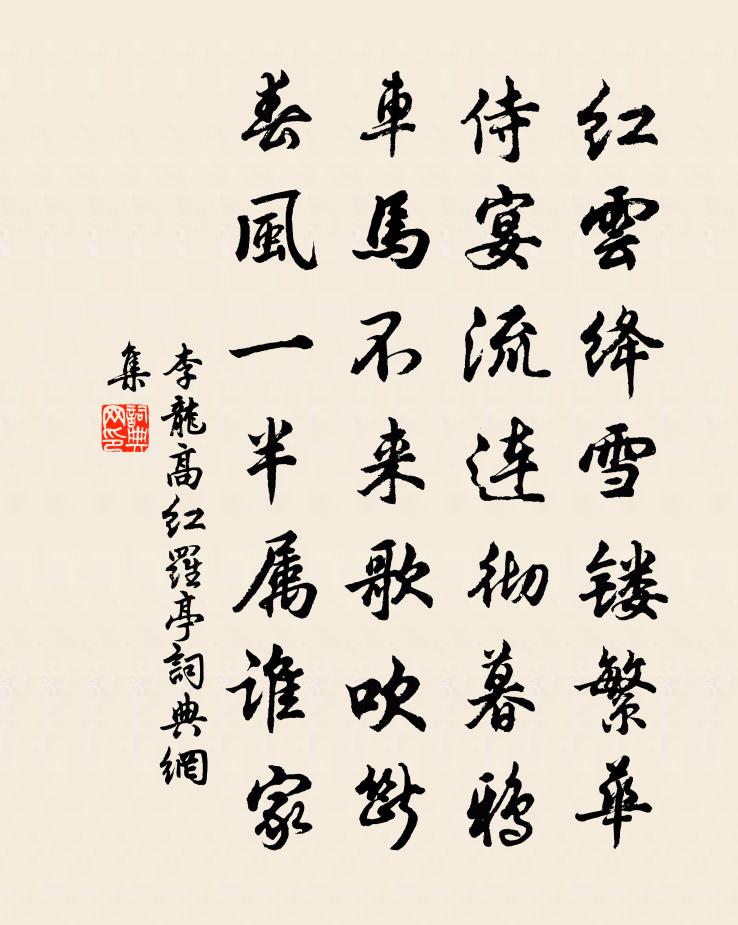 红雲绛雪镂繁華
侍宴流連彻暮鴉
車馬不来歌吹斷
春風一半属谁家
李龍高红羅亭詞典網
集
詞典
网印